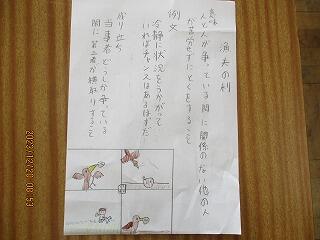 漁夫の利
意味
人と人が争っている間に関係のない他の人
が苦労せずにとくをすること
例文
冷静に状況をうかがって
いればチャンスはあるはずだ
成り立ち
当事者どうしが争っている
間に第三者が横取りすること
2023/12/20 08:53